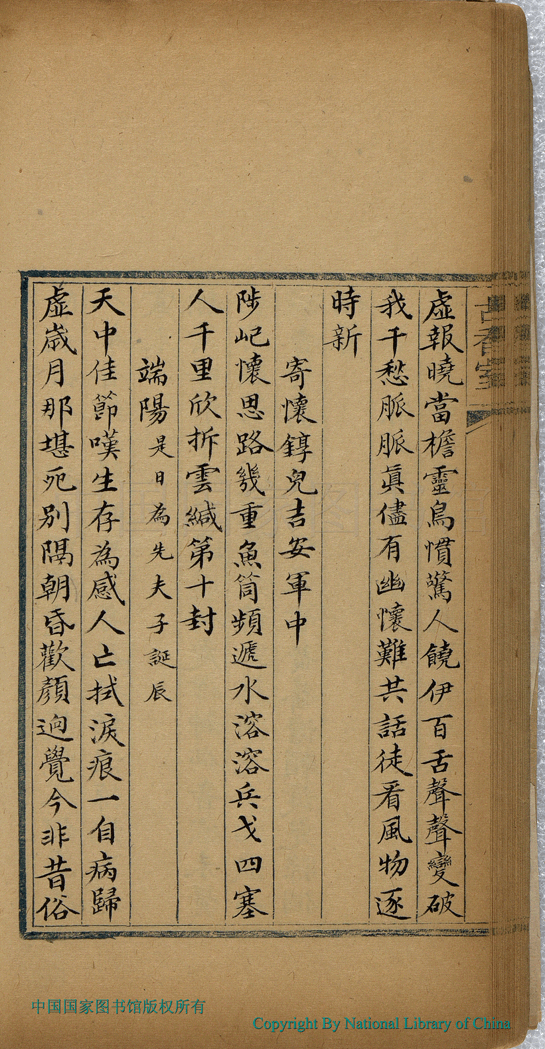 古香室
虛報曉當檐靈鳥慣驚人饒伊百舌聲聲變破
我千愁脈脈眞儘有幽懷難共話徒看風物逐
時新
寄懷錞兒吉安軍中
陟屺懷思路幾重魚筒頻遞水溶溶兵戈四塞
人千里欣拆雲緘第十封
端陽是日為先夫子誕辰
天中佳節嘆生存為感人亡拭淚痕一自病歸
虛歲月那堪死別隔朝昏歡顏逈覺今非昔俗
中国国家图书馆版权所有
Copyright By National Library of China